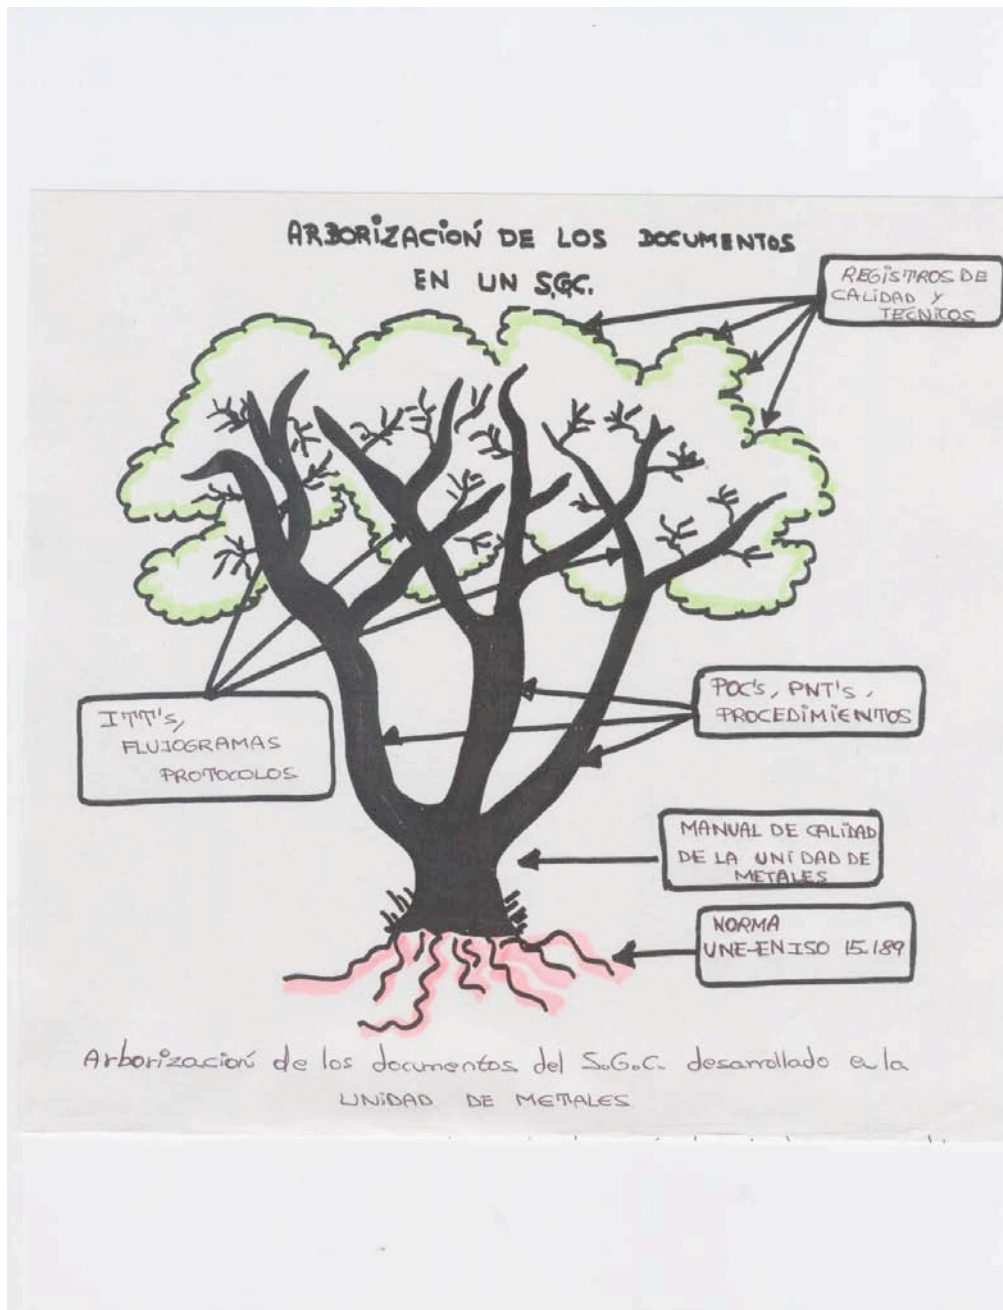 ARBORIZACIOŃ DE LOS DOCUMENTOS
EN UN S.G.C.
REGISTROS DE
CALIDAD Y
TECNICOS
ITT's,
FLUJOGRAMAS
PROTOCOLOS
POC's, PNT's,
PROCEDIMIENTOS
MANUAL DE CALIDAD
DE LA UNIDAD DE
METALES
NORMA
UNE-EN ISO 15.189
Arborización de los documentos del S.G.C. desarrollado en la
UNIDAD DE METALES